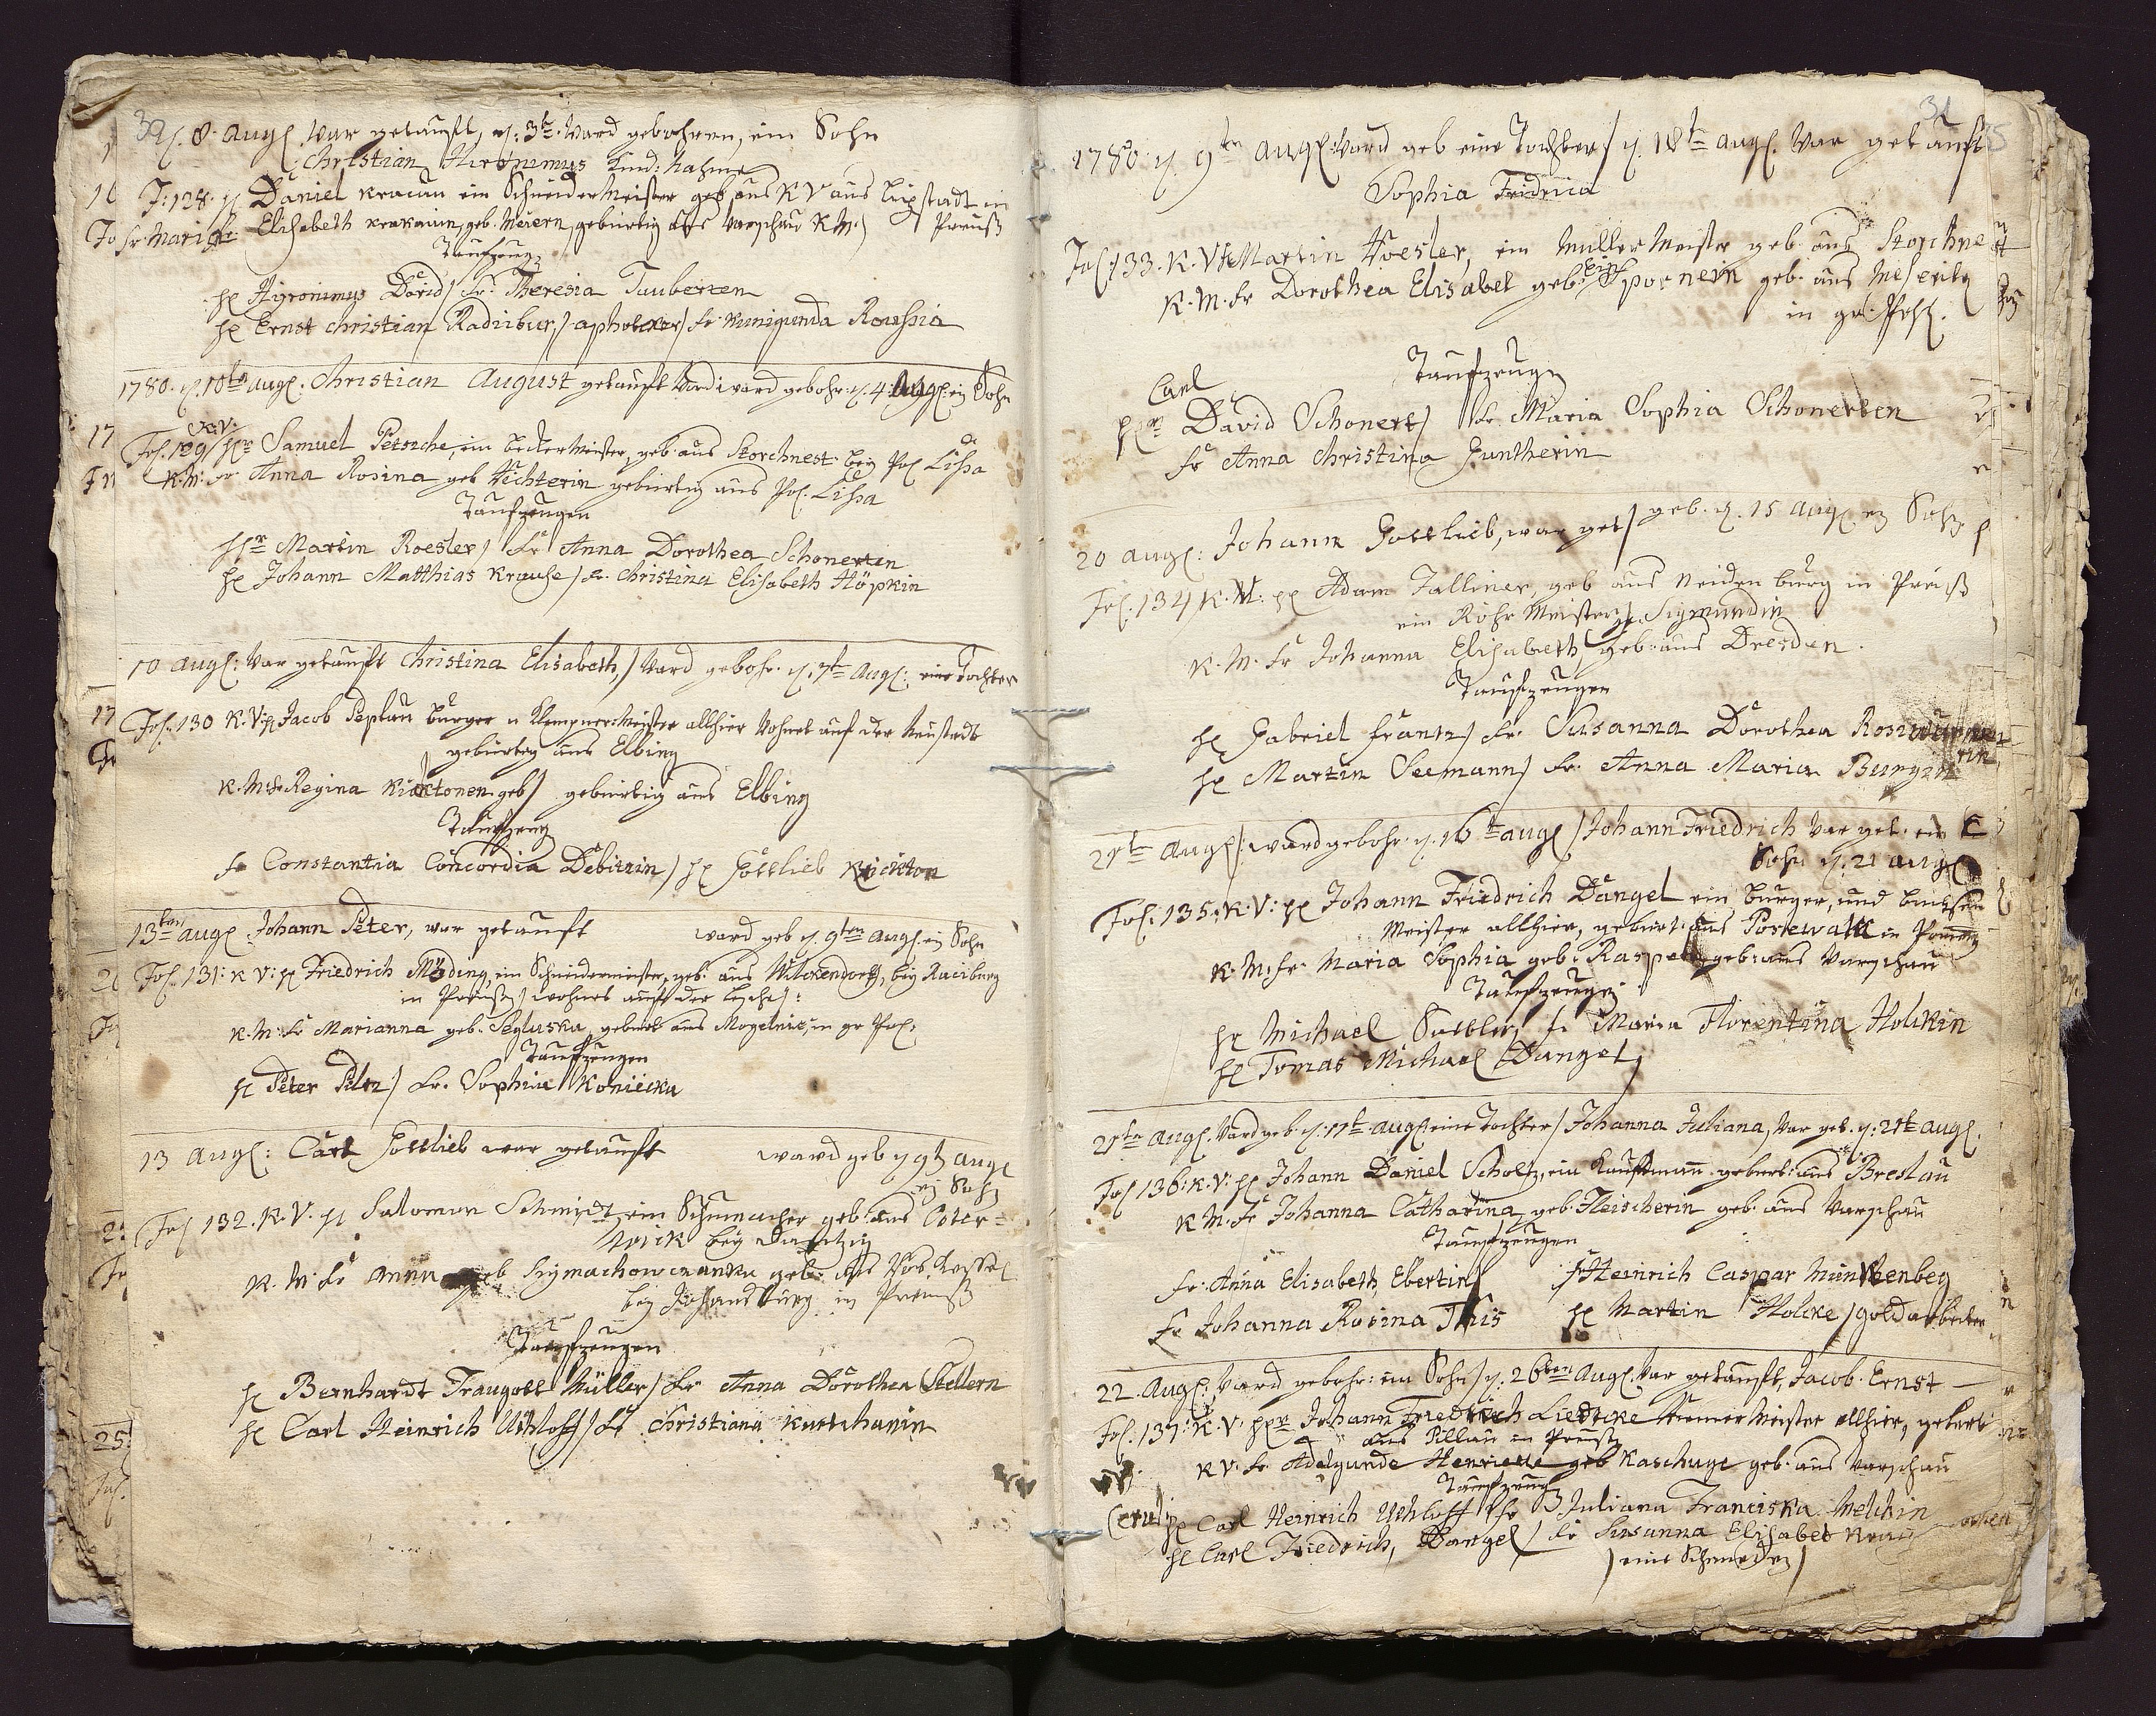 30
d. 8. Aug. War getauft, d. 3t. Ward gebohren, ein Sohn
Christian Hironimus Kind: Nahme
F: 128. H Daniel Kracau ein Schneider Meister geb. aus K V aus Lipstadt in Preuß
Fr. Maria Elisabeth Krakauin, geb. Meiern, gebürtig aus Warschau K. M.
Taufzeug
H Hyronimus David / Fr. Theresia Tauberten
H Ernst Christian Radiibur, / apthecker / Fr Kunigunda Roussia
1780. d. 10tn Aug. Christian August getauft Word ward gebohr. d. 4. Aug. ein Sohn
K. V.
Fol. 129 / Hr Samuel Petsche, ein becker Meister, geb. aus Storchnest bey Pol. Lissa
K. M. Fr Anna Rosina geb Fichterin gebürtig aus Pol. Lissa
Taufzeugen
Hr Martin Roesler / Fr Anna Dorothea Schonertin
H Johann Matthias Krause / Fr. Christina Elisabeth Höpkin
10 Aug: War getauft Christina Elisabeth, / Ward gebohr. d. 7t Aug: eine Tochter
Fol. 130 K. V: H Jacob Peplau Bürger u Klempner Meister allhier Wohnet auf der Neustadt
gebürtig aus Elbing
K. M. Fr Regina Kicktonen geb / gebürtig aus Elbing
Taufzeug
Fr Constantia Concordia Debitzin / H Gottlieb Kickton
13ten Aug Johann Peter, war getauft ward geb d. 9ten Aug. ein Sohn
Fol. 131: K V: H Friedrich Möding, ein Schneidermeister, geb. aus Wilckendorff, bey Raciburg
in Preußs / wohnet auf der Lesche /:
K. M: Fr Marianna geb. Segluska, gebürt aus Mogelnic, in gr Pol:
Taufzeugen
H Peter Piltz / Fr. Sophia Koniecka
13 Aug: Carl Gottlieb war getauft ward geb d 9t Aug
ein Sohn
Fol 132. K. V. H Salomon Schmidt, ein Schumacher geb. aus Oster=
wick bey Dantzig
K. M Fr Anna geb Szymachowczanka geb. aus
bey Johansburg in Preuß
Taufzeugen
H Bernhardt Traugott Müller / Fr Anna Dorothea Stellern
H Carl Heinrich Uthloff / Fr Christiana Kurtzhanin
31
1780: d. 9tn Aug: Ward geb eine Tochter / d. 18t Aug. War getauft
Sophia Fridrica
Fol. 133. K. V H Martin Hoesler, ein Müller Meister geb. aus Storchnest
K. M. Fr Dorothea Elisabet geb. Spornein geb. aus Meseritz
in gr. Pohl.
Taufzeugen
Carl
Hr David Schonert / Fr. Maria Sophia Schonerten
Fr Anna Christina Guntherin
20 Aug: Johann Gottlieb, war get / geb. d. 15 Aug ein Sohn
Fol. 134 / K. V: H Adam Talliner, geb aus Neidenburg in Preuß
ein Rohr Meister / Sigmundin
K. M. Fr Johanna Elisabeth, geb. aus Dresden.
Taufzeugen
H Gabriel Frantz / Fr. Susanna Dorothea
H Martin Seemann / Fr. Anna Maria Burgin
21t Aug: / ward gebohr. d. 16t Aug / Johann Friedrich War get. ein
Sohn d. 21 Aug
Fol: 135: K. V: H Johann Friedrich Dangel ein Bürger, und büchsen
Meister allhier, gebürt. aus Posewalck in Pommern
K. M: Fr. Maria Sophia geb. Raspe geb. aus Warschau
Taufzeugen
H Michael Sattler / Fr Maria Florentina Holckin
H Tomas Michael Dangel,
21tn Aug. Ward geb. d: 17t Aug eine Tochter / Johanna Juliana, War get. d: 21t Aug.
Fol 136: K. V: H Johann Daniel Scholtz, ein Kauffmann gebürt: aus Breslau
K. M. Fr Johanna Catharina, geb. Fleischerin geb. aus Warschau
Taufzeugen
Fr. Anna Elisabeth Ebertin H Heinrich Caspar Minkenbeg
Fr Johanna Rosina Theis H Martin Holcke / goldarbeiter
22. Aug: Ward gebohr: ein Sohn / d. 26ten Aug: War getauft, Jacob Ernst
Fol. 137: K. V: Hr Johann Friedrich Liedtcke Riemer Meister allhier, gebürt
aus Pillau in Preuß
K V. Fr. Adelgunde Henriette geb Kaschuge geb. aus Warschau
Taufzeug
H Carl Heinrich Uthloff / Fr Juliana Franciska Melchin
H Carl Friedrich, Dangel / Fr Susanna Elisabet
/ eine Schmeden /